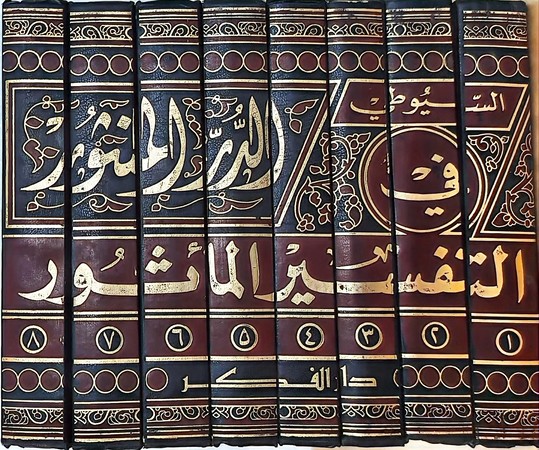 السيوطي
الدر المنثور
في
التفسير المأثور
١ ٢ ٣ ٤ ٥ ٦ ٧ ٨
دار الفكر